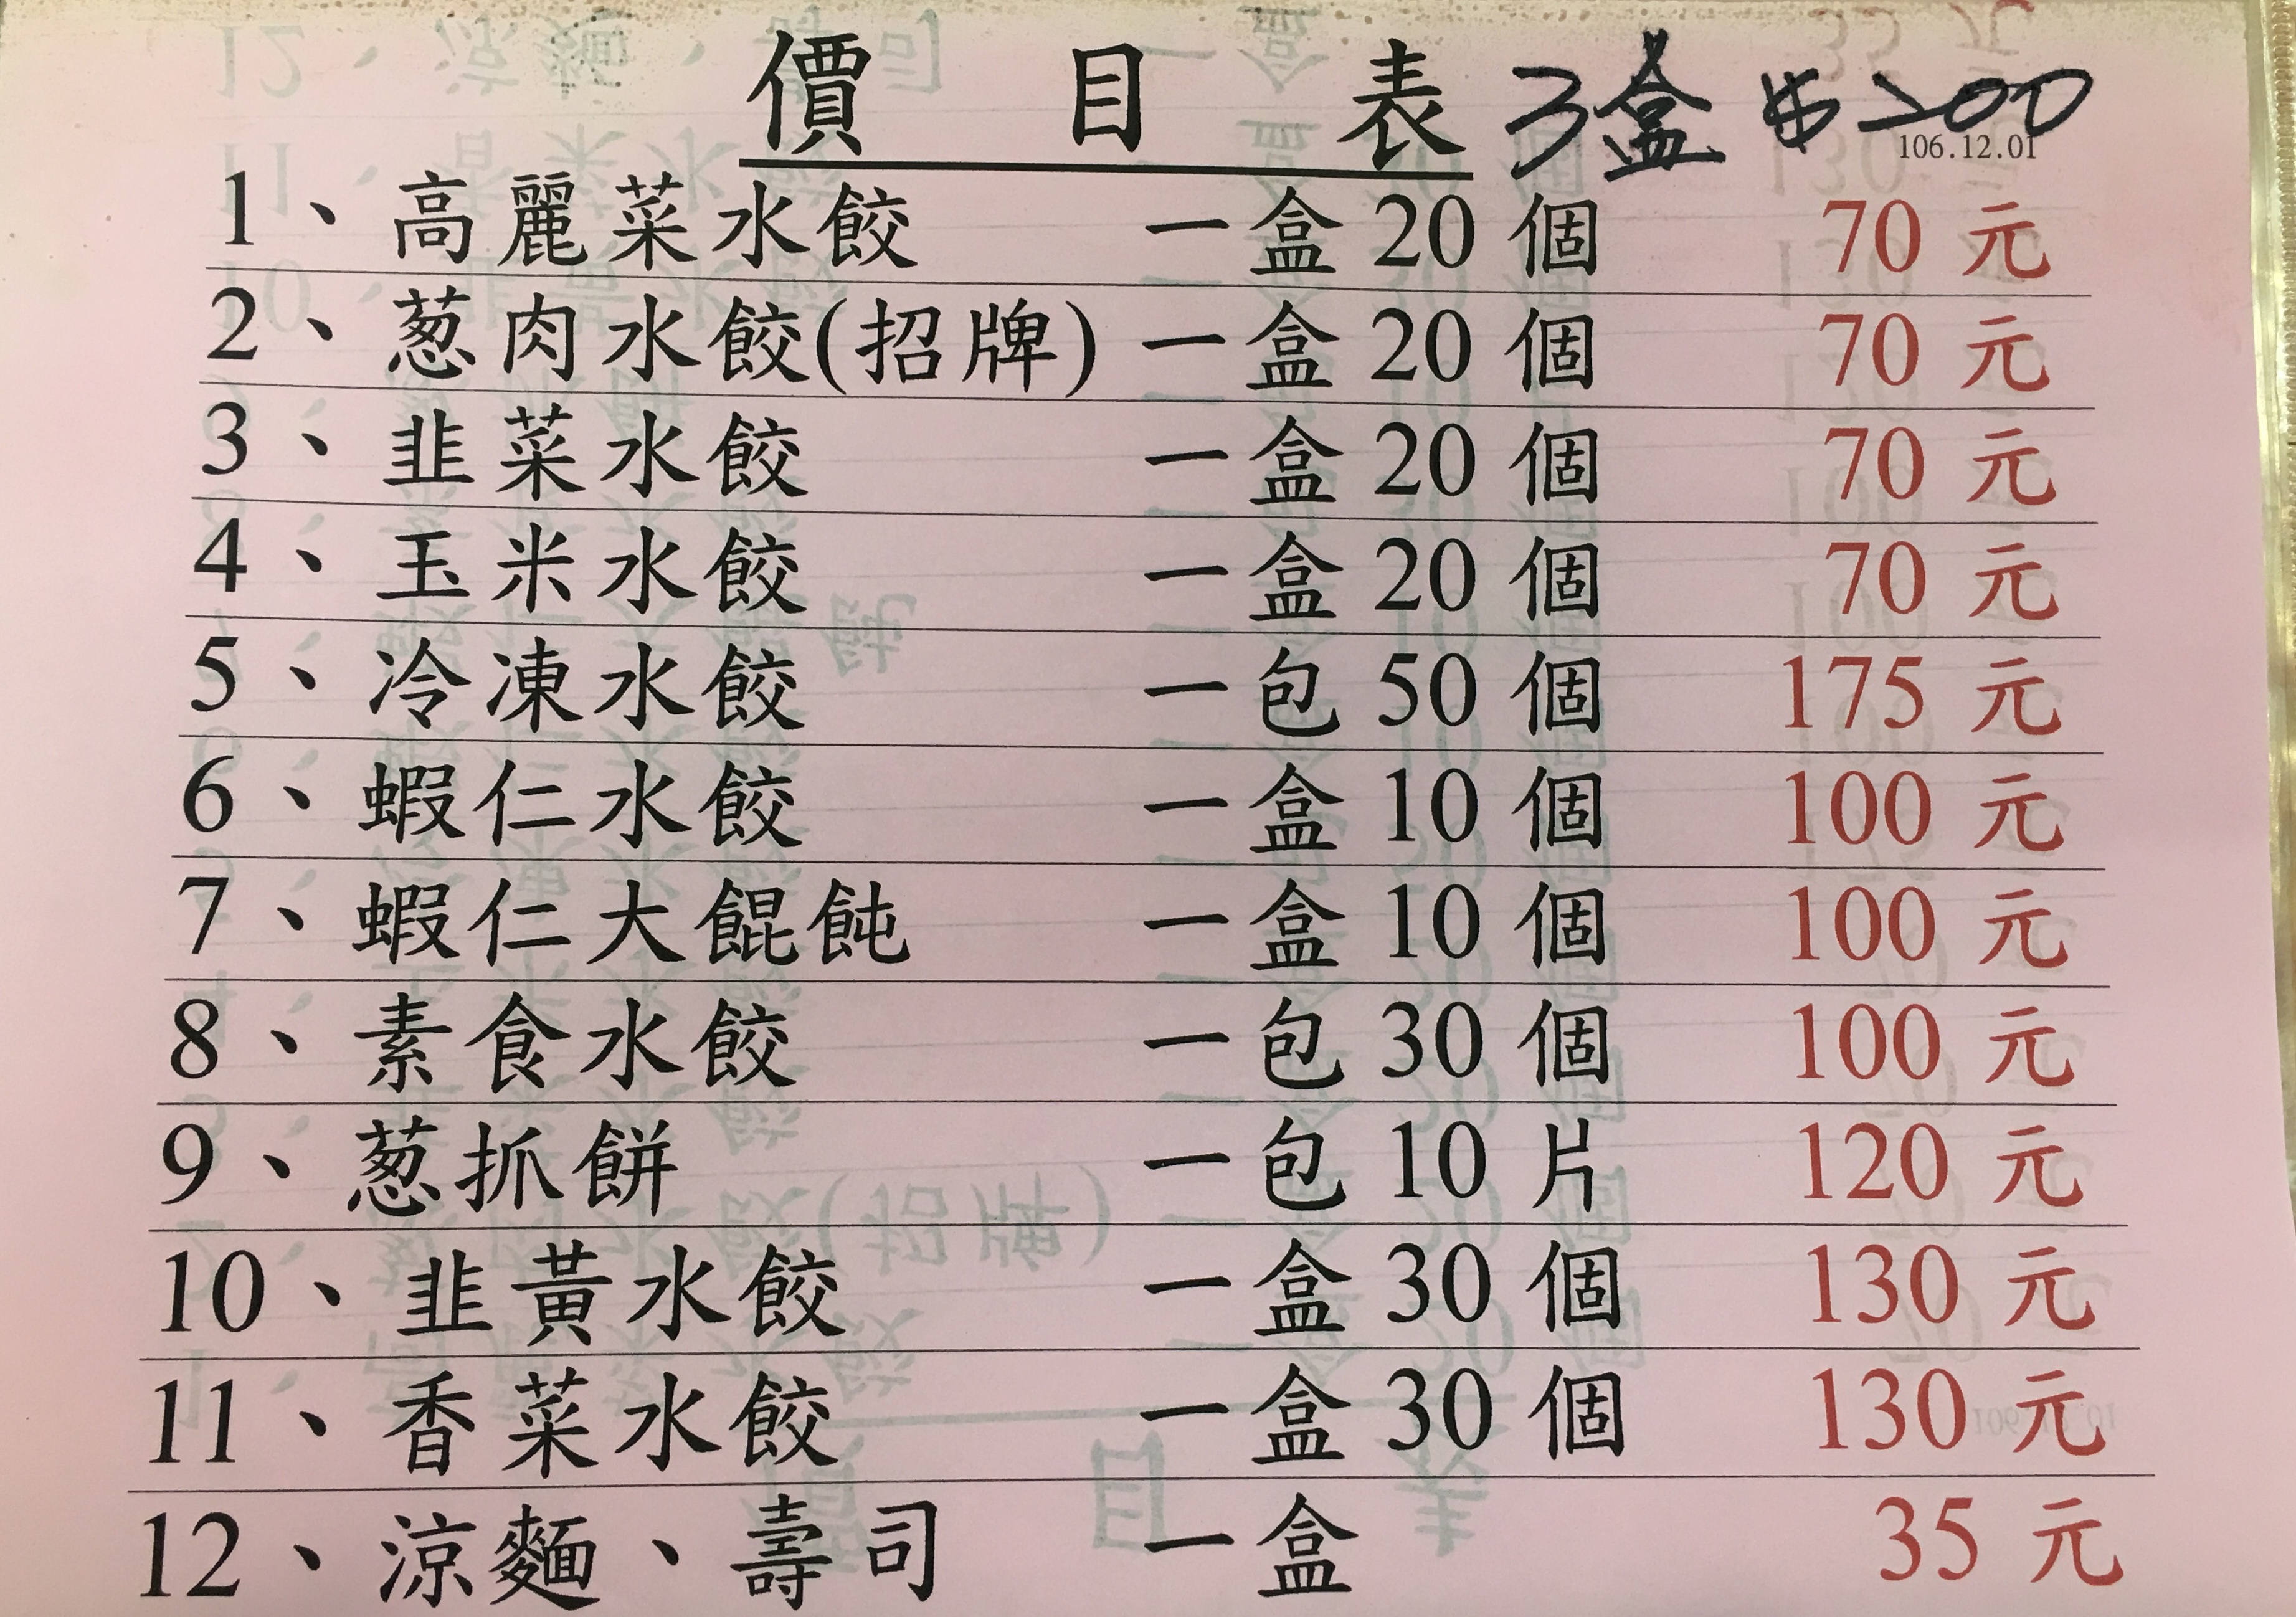 價 目 表 3盒 $200
106.12.01
1、高麗菜水餃 一盒 20 個 70 元
2、葱肉水餃(招牌) 一盒 20 個 70 元
3、韭菜水餃 一盒 20 個 70 元
4、玉米水餃 一盒 20 個 70 元
5、冷凍水餃 一包 50 個 175 元
6、蝦仁水餃 一盒 10 個 100 元
7、蝦仁大餛飩 一盒 10 個 100 元
8、素食水餃 一包 30 個 100 元
9、葱抓餅 一包 10 片 120 元
10、韭黃水餃 一盒 30 個 130 元
11、香菜水餃 一盒 30 個 130 元
12、涼麵、壽司 一盒 35 元